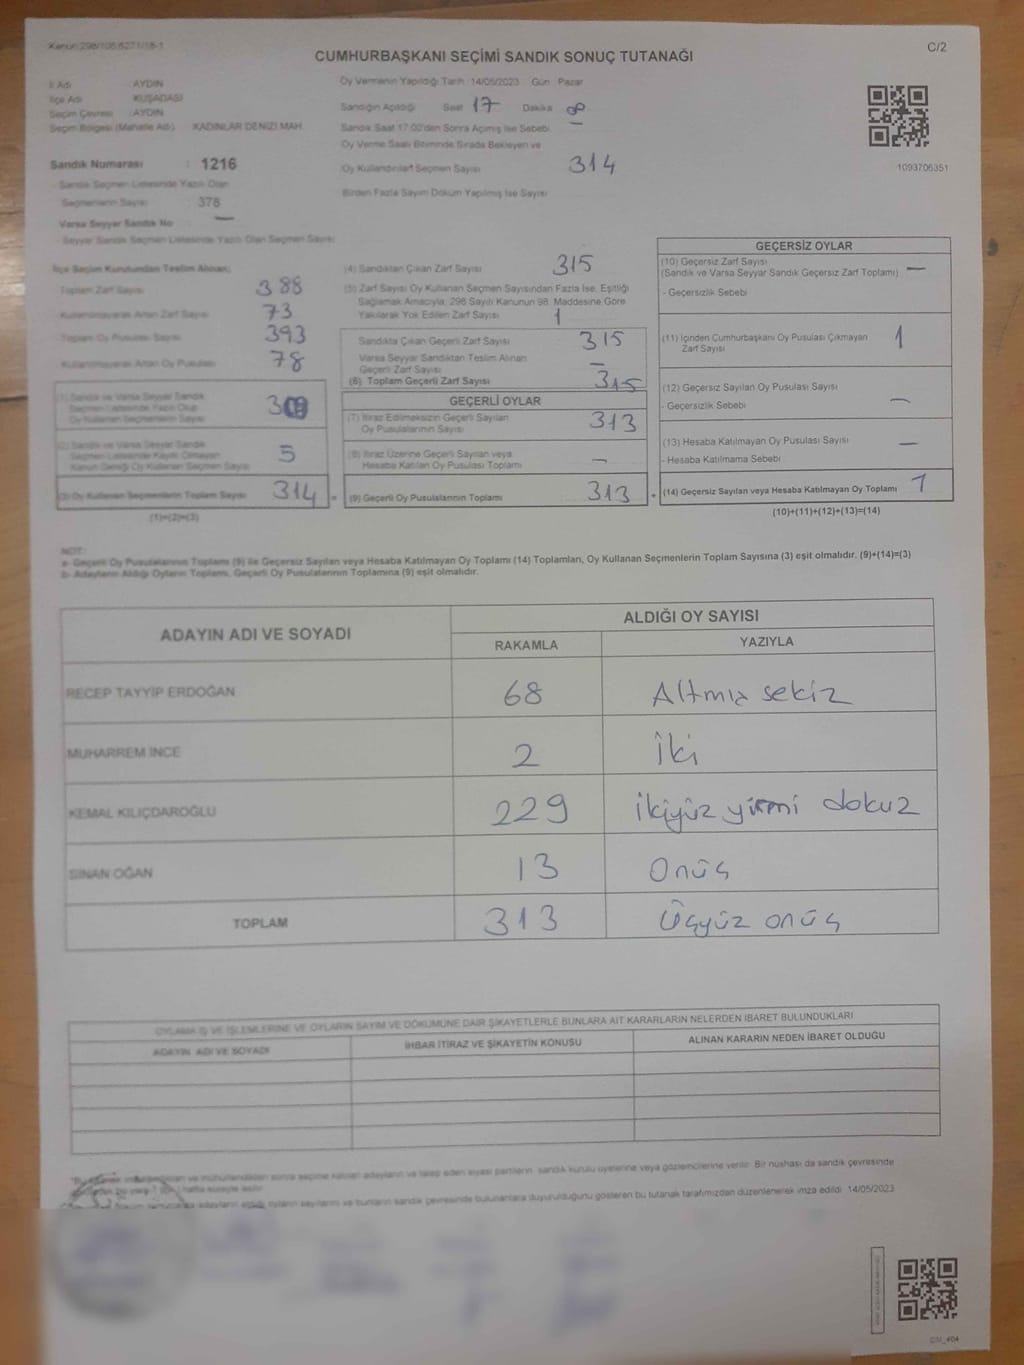 Kanun:298/105,6271/18-1
C/2
CUMHURBAŞKANI SEÇİMİ SANDIK SONUÇ TUTANAĞI
İl Adı : AYDIN
İlçe Adı : KUŞADASI
Seçim Çevresi : AYDIN
Seçim Bölgesi (Mahalle Adı) : KADINLAR DENİZİ MAH.
Sandık Numarası : 1216
- Sandık Seçmen Listesinde Yazılı Olan
Seçmenlerin Sayısı : 378
Varsa Seyyar Sandık No —
- Seyyar Sandık Seçmen Listesinde Yazılı Olan Seçmen Sayısı:
Oy Vermenin Yapıldığı Tarih :14/05/2023 Gün : Pazar
Sandığın Açıldığı Saat 17 Dakika
Sandık Saat 17:00'den Sonra Açılmış İse Sebebi: —
Oy Verme Saati Bitiminde Sırada Bekleyen ve
Oy Kullandırılan Seçmen Sayısı 314
Birden Fazla Sayım Döküm Yapılmış İse Sayısı
1093706351
İlçe Seçim Kurulundan Teslim Alınan;
Toplam Zarf Sayısı 388
- Kullanılmayarak Artan Zarf Sayısı 73
- Toplam Oy Pusulası Sayısı 393
- Kullanılmayarak Artan Oy Pusulası 78
(1) Sandık ve Varsa Seyyar Sandık
Seçmen Listesinde Yazılı Olup
Oy Kullanan Seçmenlerin Sayısı
(2) Sandık ve Varsa Seyyar Sandık
Seçmen Listesinde Kayıtlı Olmayan
Kanun Gereği Oy Kullanan Seçmen Sayısı 5
(3) Oy Kullanan Seçmenlerin Toplam Sayısı 314 =
(1)+(2)=(3)
(4) Sandıktan Çıkan Zarf Sayısı 315
(5) Zarf Sayısı Oy Kullanan Seçmen Sayısından Fazla İse, Eşitliği
Sağlamak Amacıyla, 298 Sayılı Kanunun 98. Maddesine Göre
Yakılarak Yok Edilen Zarf Sayısı 1
Sandıkta Çıkan Geçerli Zarf Sayısı 315
Varsa Seyyar Sandıktan Teslim Alınan
Geçerli Zarf Sayısı —
(6) Toplam Geçerli Zarf Sayısı 315
GEÇERLİ OYLAR
(7) İtiraz Edilmeksizin Geçerli Sayılan
Oy Pusulalarının Sayısı 313
(8) İtiraz Üzerine Geçerli Sayılan veya
Hesaba Katılan Oy Pusulası Toplamı —
(9) Geçerli Oy Pusulalarının Toplamı 313 +
GEÇERSİZ OYLAR
(10) Geçersiz Zarf Sayısı
(Sandık ve Varsa Seyyar Sandık Geçersiz Zarf Toplamı) —
- Geçersizlik Sebebi
(11) İçinden Cumhurbaşkanı Oy Pusulası Çıkmayan
Zarf Sayısı 1
(12) Geçersiz Sayılan Oy Pusulası Sayısı
- Geçersizlik Sebebi —
(13) Hesaba Katılmayan Oy Pusulası Sayısı —
- Hesaba Katılmama Sebebi
(14) Geçersiz Sayılan veya Hesaba Katılmayan Oy Toplamı 1
(10)+(11)+(12)+(13)=(14)
NOT:
a- Geçerli Oy Pusulalarının Toplamı (9) ile Geçersiz Sayılan veya Hesaba Katılmayan Oy Toplamı (14) Toplamları, Oy Kullanan Seçmenlerin Toplam Sayısına (3) eşit olmalıdır. (9)+(14)=(3)
b- Adayların Aldığı Oyların Toplamı, Geçerli Oy Pusulalarının Toplamına (9) eşit olmalıdır.
ADAYIN ADI VE SOYADI
ALDIĞI OY SAYISI
RAKAMLA YAZIYLA
RECEP TAYYİP ERDOĞAN 68 Altmış sekiz
MUHARREM İNCE 2 İki
KEMAL KILIÇDAROĞLU 229 ikiyüz yirmi dokuz
SİNAN OĞAN 13 Onüç
TOPLAM 313 Üçyüz onüç
OYLAMA İŞ VE İŞLEMLERİNE VE OYLARIN SAYIM VE DÖKÜMÜNE DAİR ŞİKAYETLERLE BUNLARA AİT KARARLARIN NELERDEN İBARET BULUNDUKLARI
ADAYIN ADI VE SOYADI İHBAR İTİRAZ VE ŞİKAYETİN KONUSU ALINAN KARARIN NEDEN İBARET OLDUĞU
ve mühürlendikten sonra seçime katılan adayların ve talep eden siyasi partilerin sandık kurulu üyelerine veya gözlemcilerine verilir. Bir nüshası da sandık çevresinde
hafta süreyle asılır.
adayların aldığı oyların sayılarını ve bunların sandık çevresinde bulunanlara duyurulduğunu gösteren bu tutanak tarafımızdan düzenlenerek imza edildi. 14/05/2023